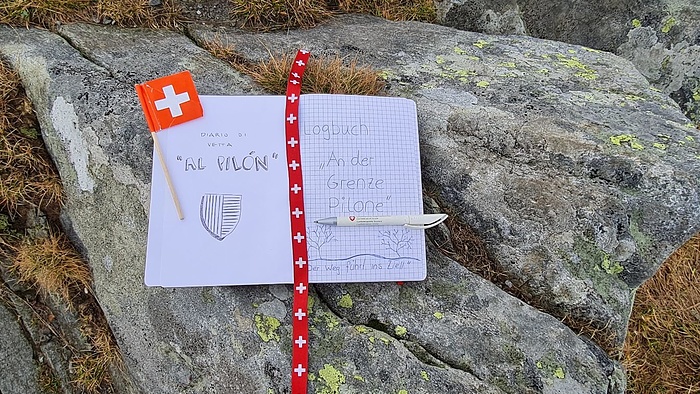 DIARIO DI
VETTA
"AL PILÓN"
Logbuch
„An der
Grenze
Pilone"
"Der Weg führt ins Ziel!"